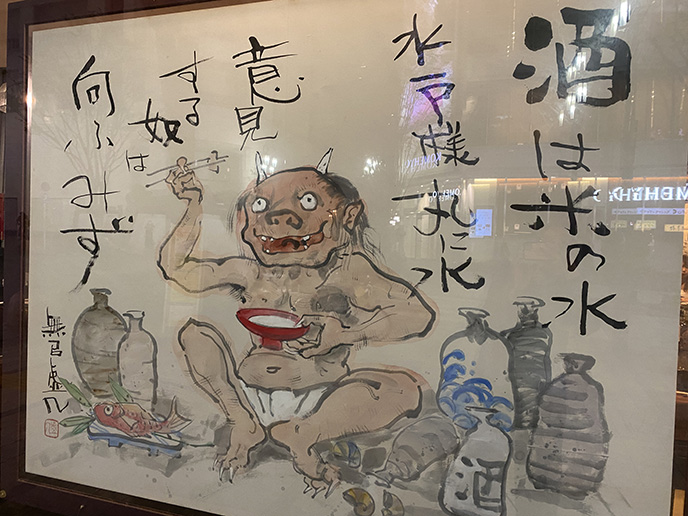 酒は米の水
水戸様は丸に水
意見
する奴は
向ふみず
酒